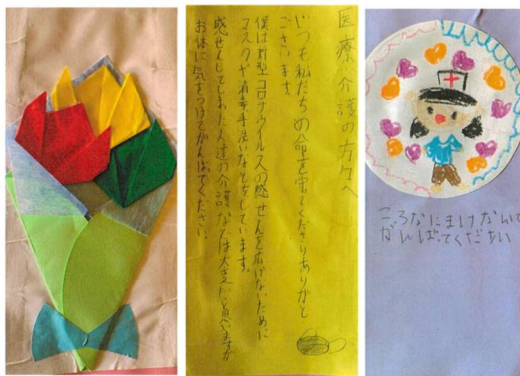 医療、介護の方々へ
いつも私たちの命を守ってくださりありがとう
ございます。
僕は新型コロナウイルスの感せんを広げないために
マスクや消毒手洗いなどをしています。
感せんしてしまった人達の介護などは大変だと思いますが
お体に気をつけてがんばってください。
ころなにまけないで
がんばってくだちい